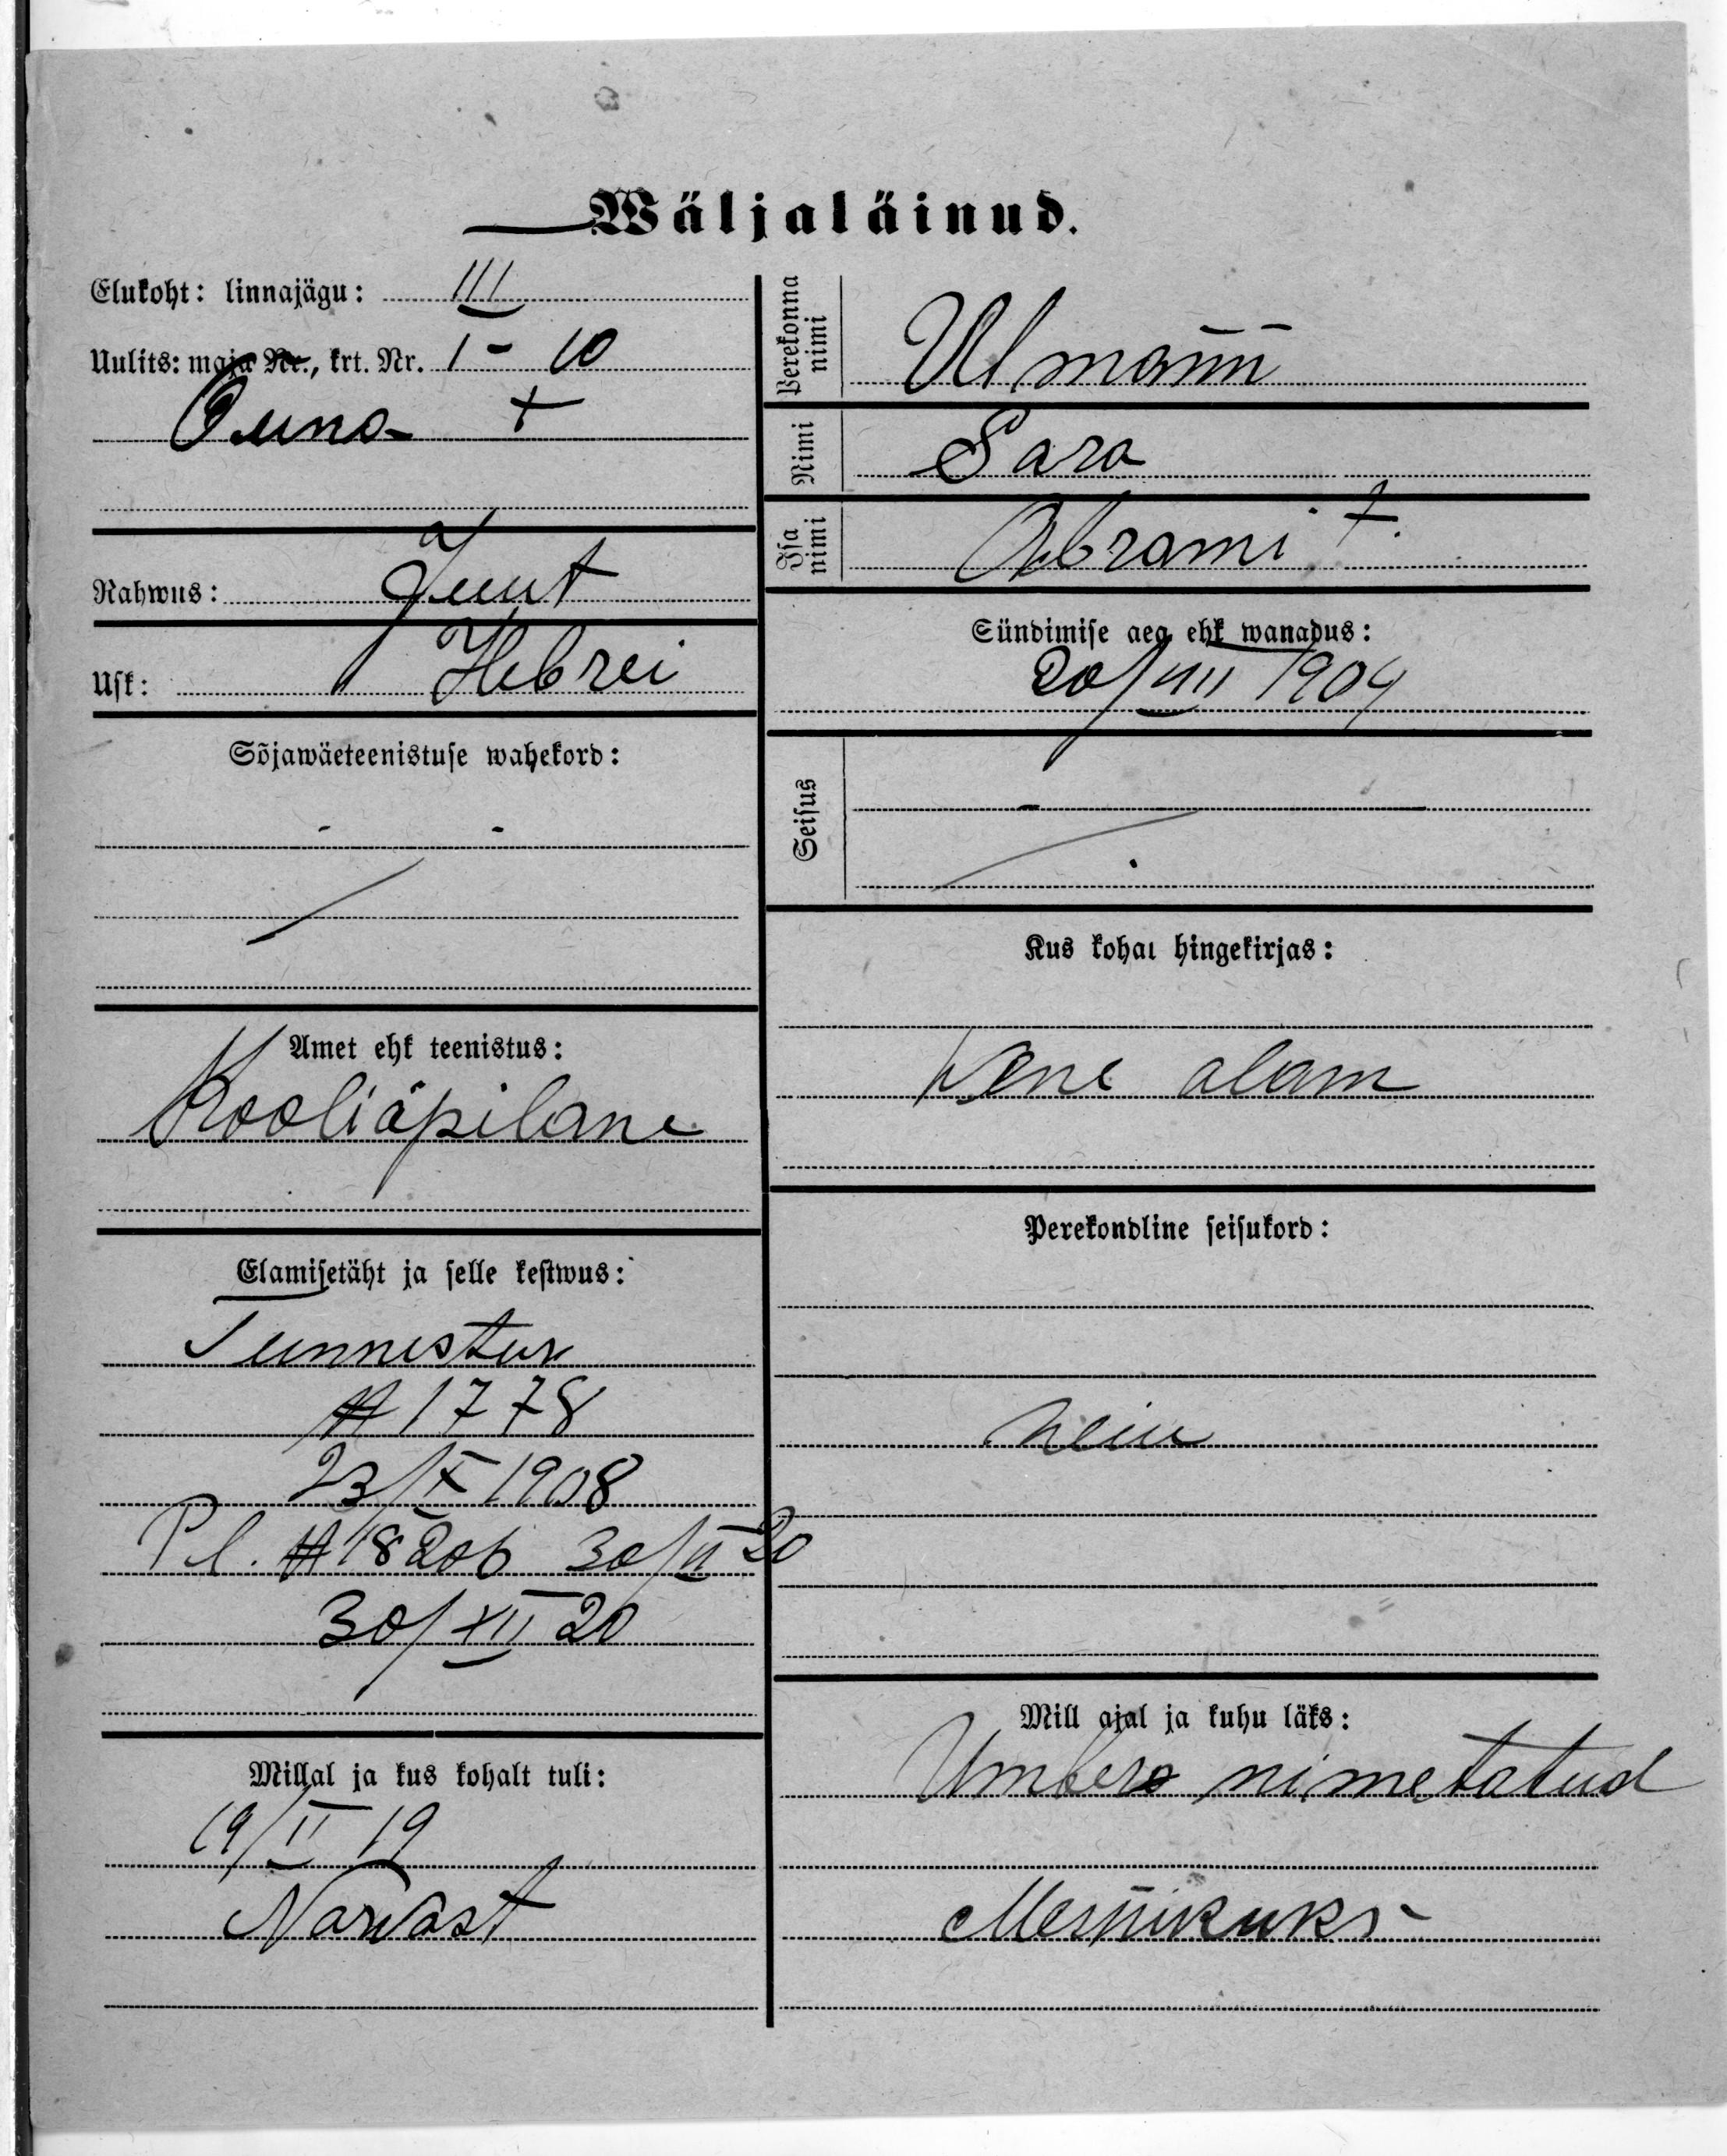 Wäljaläinud.
Elukoht: linnajägu: III
Uulits: maja Nr., krt. Nr. 1 - 10
Õuna +
Rahwus: Juut
Usk: Hebrei
Sõjawäeteenistuse wahekord:
- -
Amet ehk teenistus:
Kooliõpilane
Elamisetäht ja selle kestwus:
Tunnistus
№ 1778
23/X 1908
Pl. № 18206 30/VI 20
30/XII 20
Millal ja kus kohalt tuli:
19/II 19
Narwast
Perekonna nimi Ulmann
Nimi Sara
Isa nimi Abrami t.
Sündimise aeg ehk wanadus:
20/VIII 1904
Seisus
Kus kohal hingekirjas:
Wene alam
Perekondline seisukord:
neiu
Mill ajal ja kuhu läks:
Umbera nimetatud